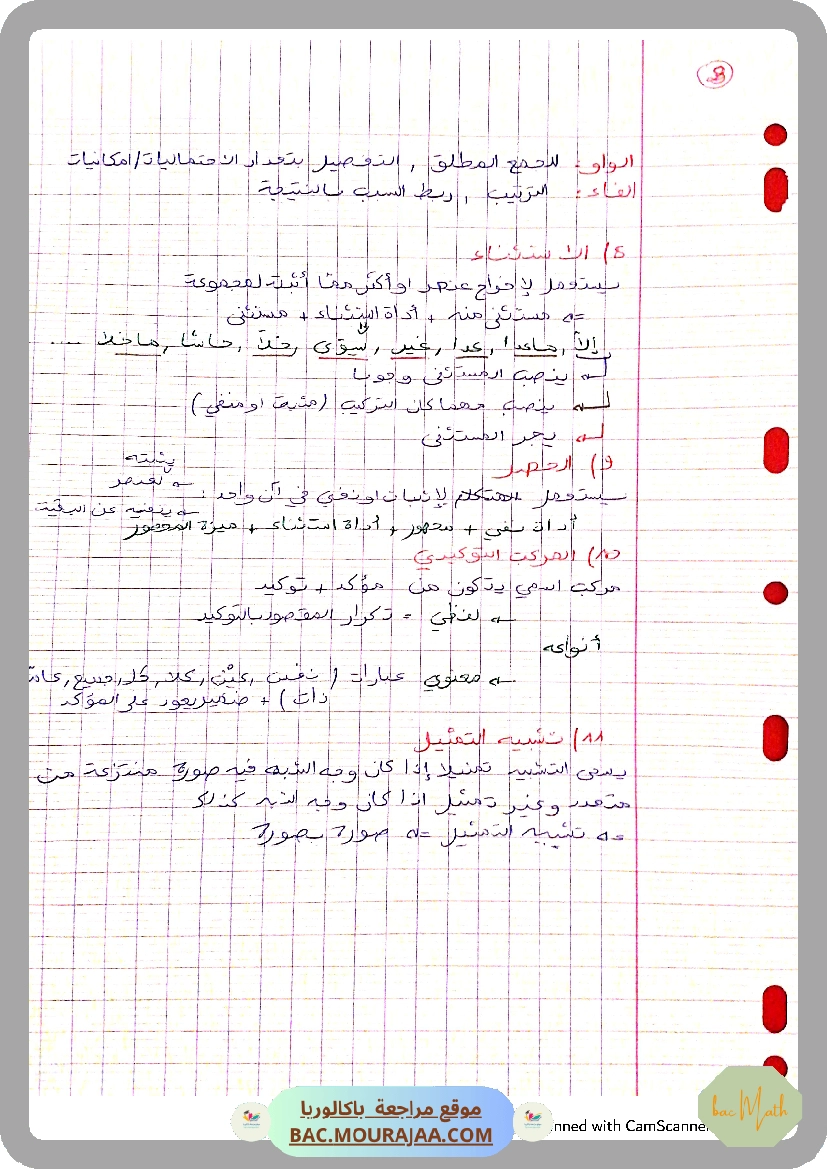 الواو: للجمع المطلق، التفصيل بتعداد الاحتماليات/امكانيات
الفاء: الترتيب، ربط السبب بالنتيجة
8) الاستثناء
يستعمل لإخراج عنصر او أكثر ممّا أثبت لمجموعة
=> مستثنى منه + أداة استثناء + مستثنى
إلاّ, ماعدا, عدا, غير, سِوَى, خلا, حاشا, ماخلا ....
ينصب المستثنى وجوبا
ينصب مهما كان التركيب (مثبت او منفي)
يجر المستثنى
9) الحصر
يثبته
لعنصر
يستعمل المتكلم لإثبات او نفي في آن واحد:
ينفيه عن البقية
أداة نفي + محصور + أداة استثناء + ميزة المحصور
10) المركب التوكيدي
مركب اسمي يتكون من مؤكد + توكيد
لفظي = تكرار المقصود بالتوكيد
أنواعه
معنوي عبارات (نفس, عين, كلا, كل, جميع, عامة
ذات) + ضمير يعود على المؤكد
11) تشبيه التمثيل
يسمى التشبيه تمثيلا إذا كان وجه الشبه فيه صورة منتزعة من
متعدد وغير تمثيل اذا كان وجه الشبه كذلك
=> تشبيه التمثيل => صورة بصورة
موقع مراجعة باكالوريا
BAC.MOURAJAA.COM
nned with CamScanner
bac Math